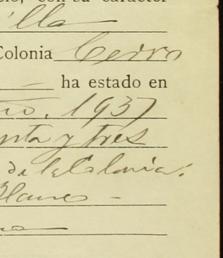 con su carácter
lla
Colonia Cerro
ha estado en
1937
nta y tres
de la Colonia.
Blanco -